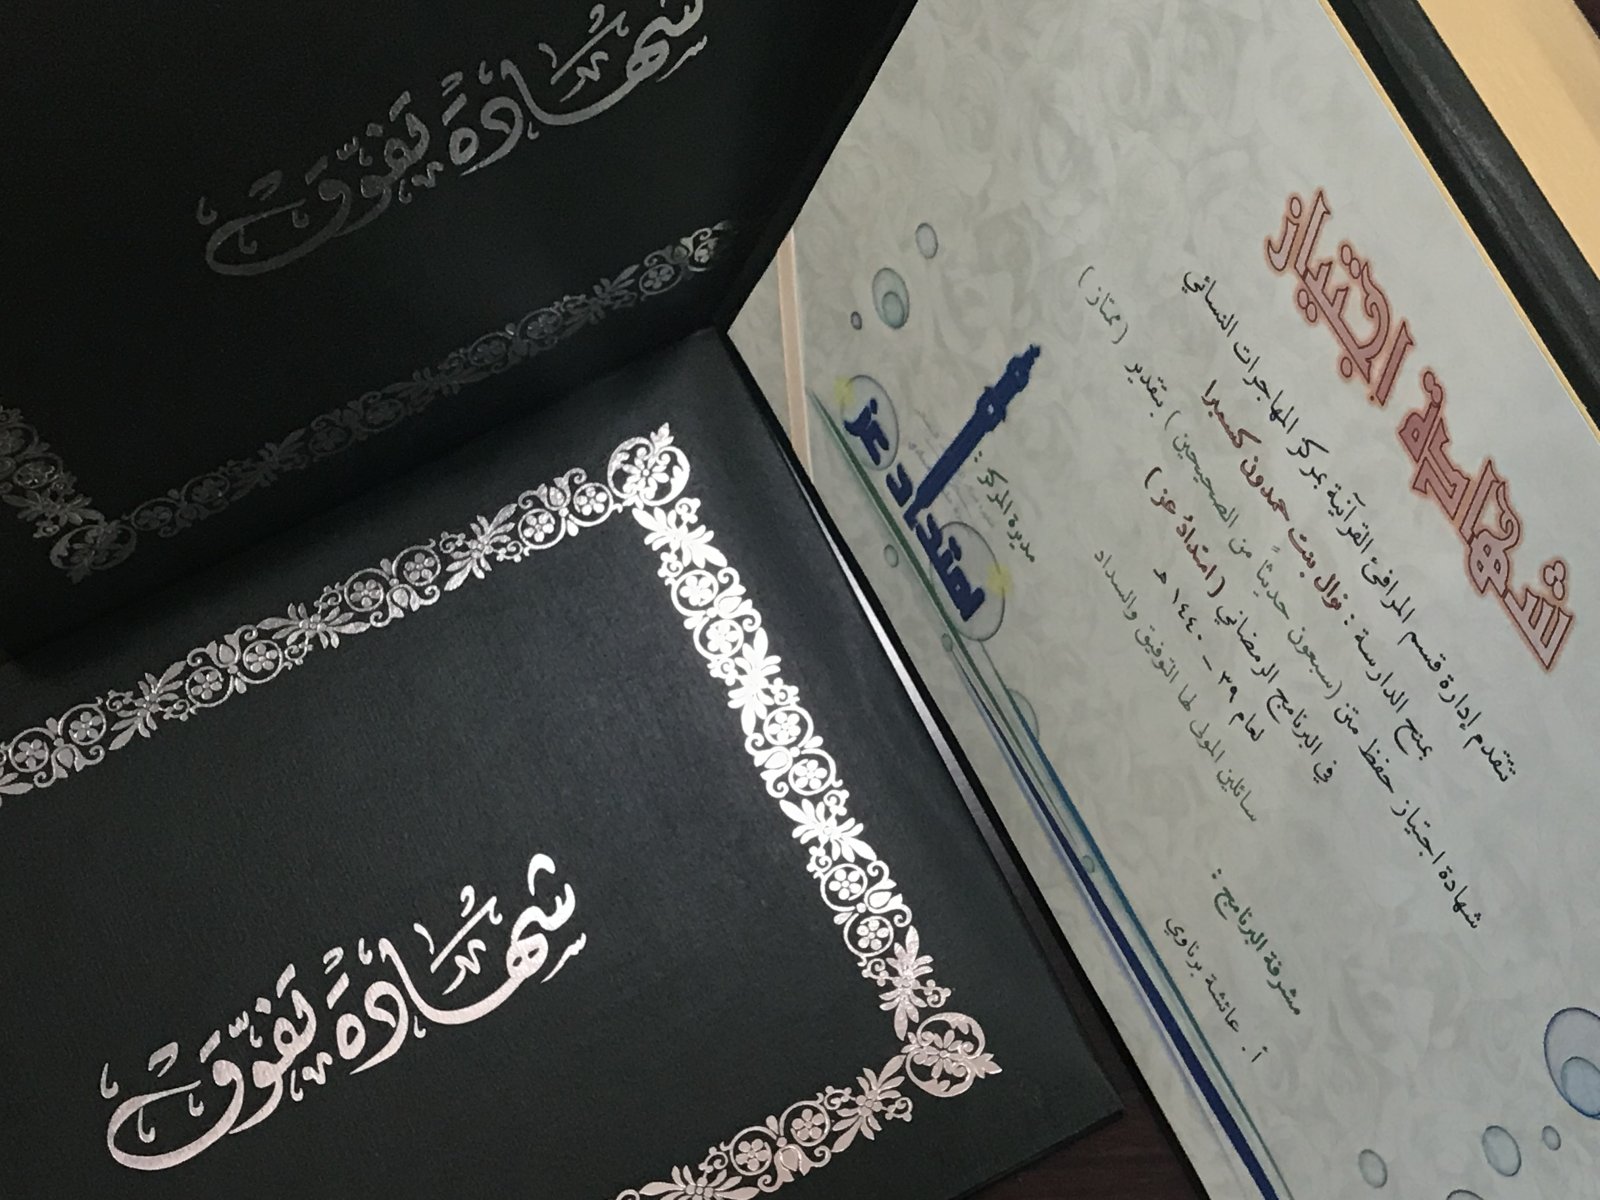 شهادة تفوق
شهادة تفوق
شهادة اجتياز
تتقدم إدارة قسم المرافئ القرآنية بمركز المهاجرات النسائي
بمنح الدارسة : نوال بنت حمدون
شهادة اجتياز حفظ متن (سبعون حديثاً من الصحيحين) بتقدير (ممتاز)
في البرنامج الرمضاني (امتداد عز)
لعام ٣٩ - ١٤٤٠ هـ
سائلين المولى لها التوفيق والسداد
مشرفة البرنامج :
أ. عائشة برناوي
مديرة المركز :
امتداد عز